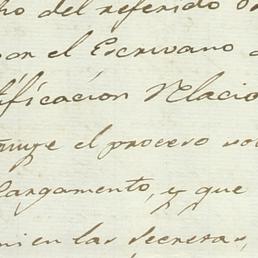 ho del referido o
por el Escrivano
tificacion Relacio
truye el proceso so
largamento, y que
ni en las secretas,